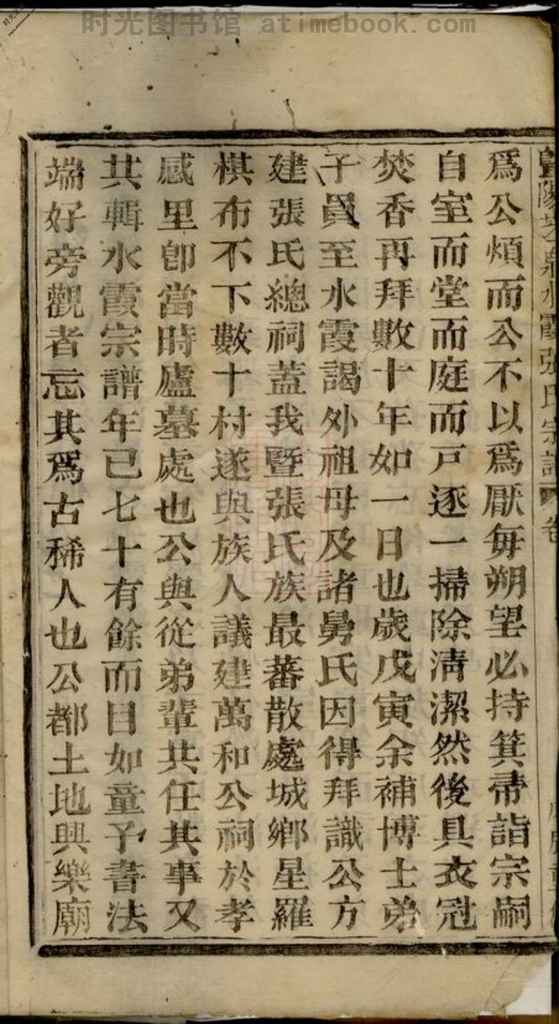 时光图书馆 atimebook.com
張氏宗譜
爲公煩而公不以爲厭每朔望必持箕帚詣宗嗣
自室而堂而庭而戸逐一掃除清潔然後具衣冠
焚香再拜數十年如一日也歲戊寅余補博士弟
子員至水霞謁外祖母及諸舅氏因得拜識公方
建張氏總祠蓋我暨張氏族最蕃散處城鄉星羅
棋布不下數十村遂與族人議建萬和公祠於孝
感里卽當時廬墓處也公與從弟輩共任其事又
共輯水霞宗譜年已七十有餘而目如童子書法
端好旁觀者忘其爲古稀人也公都土地興樂廟